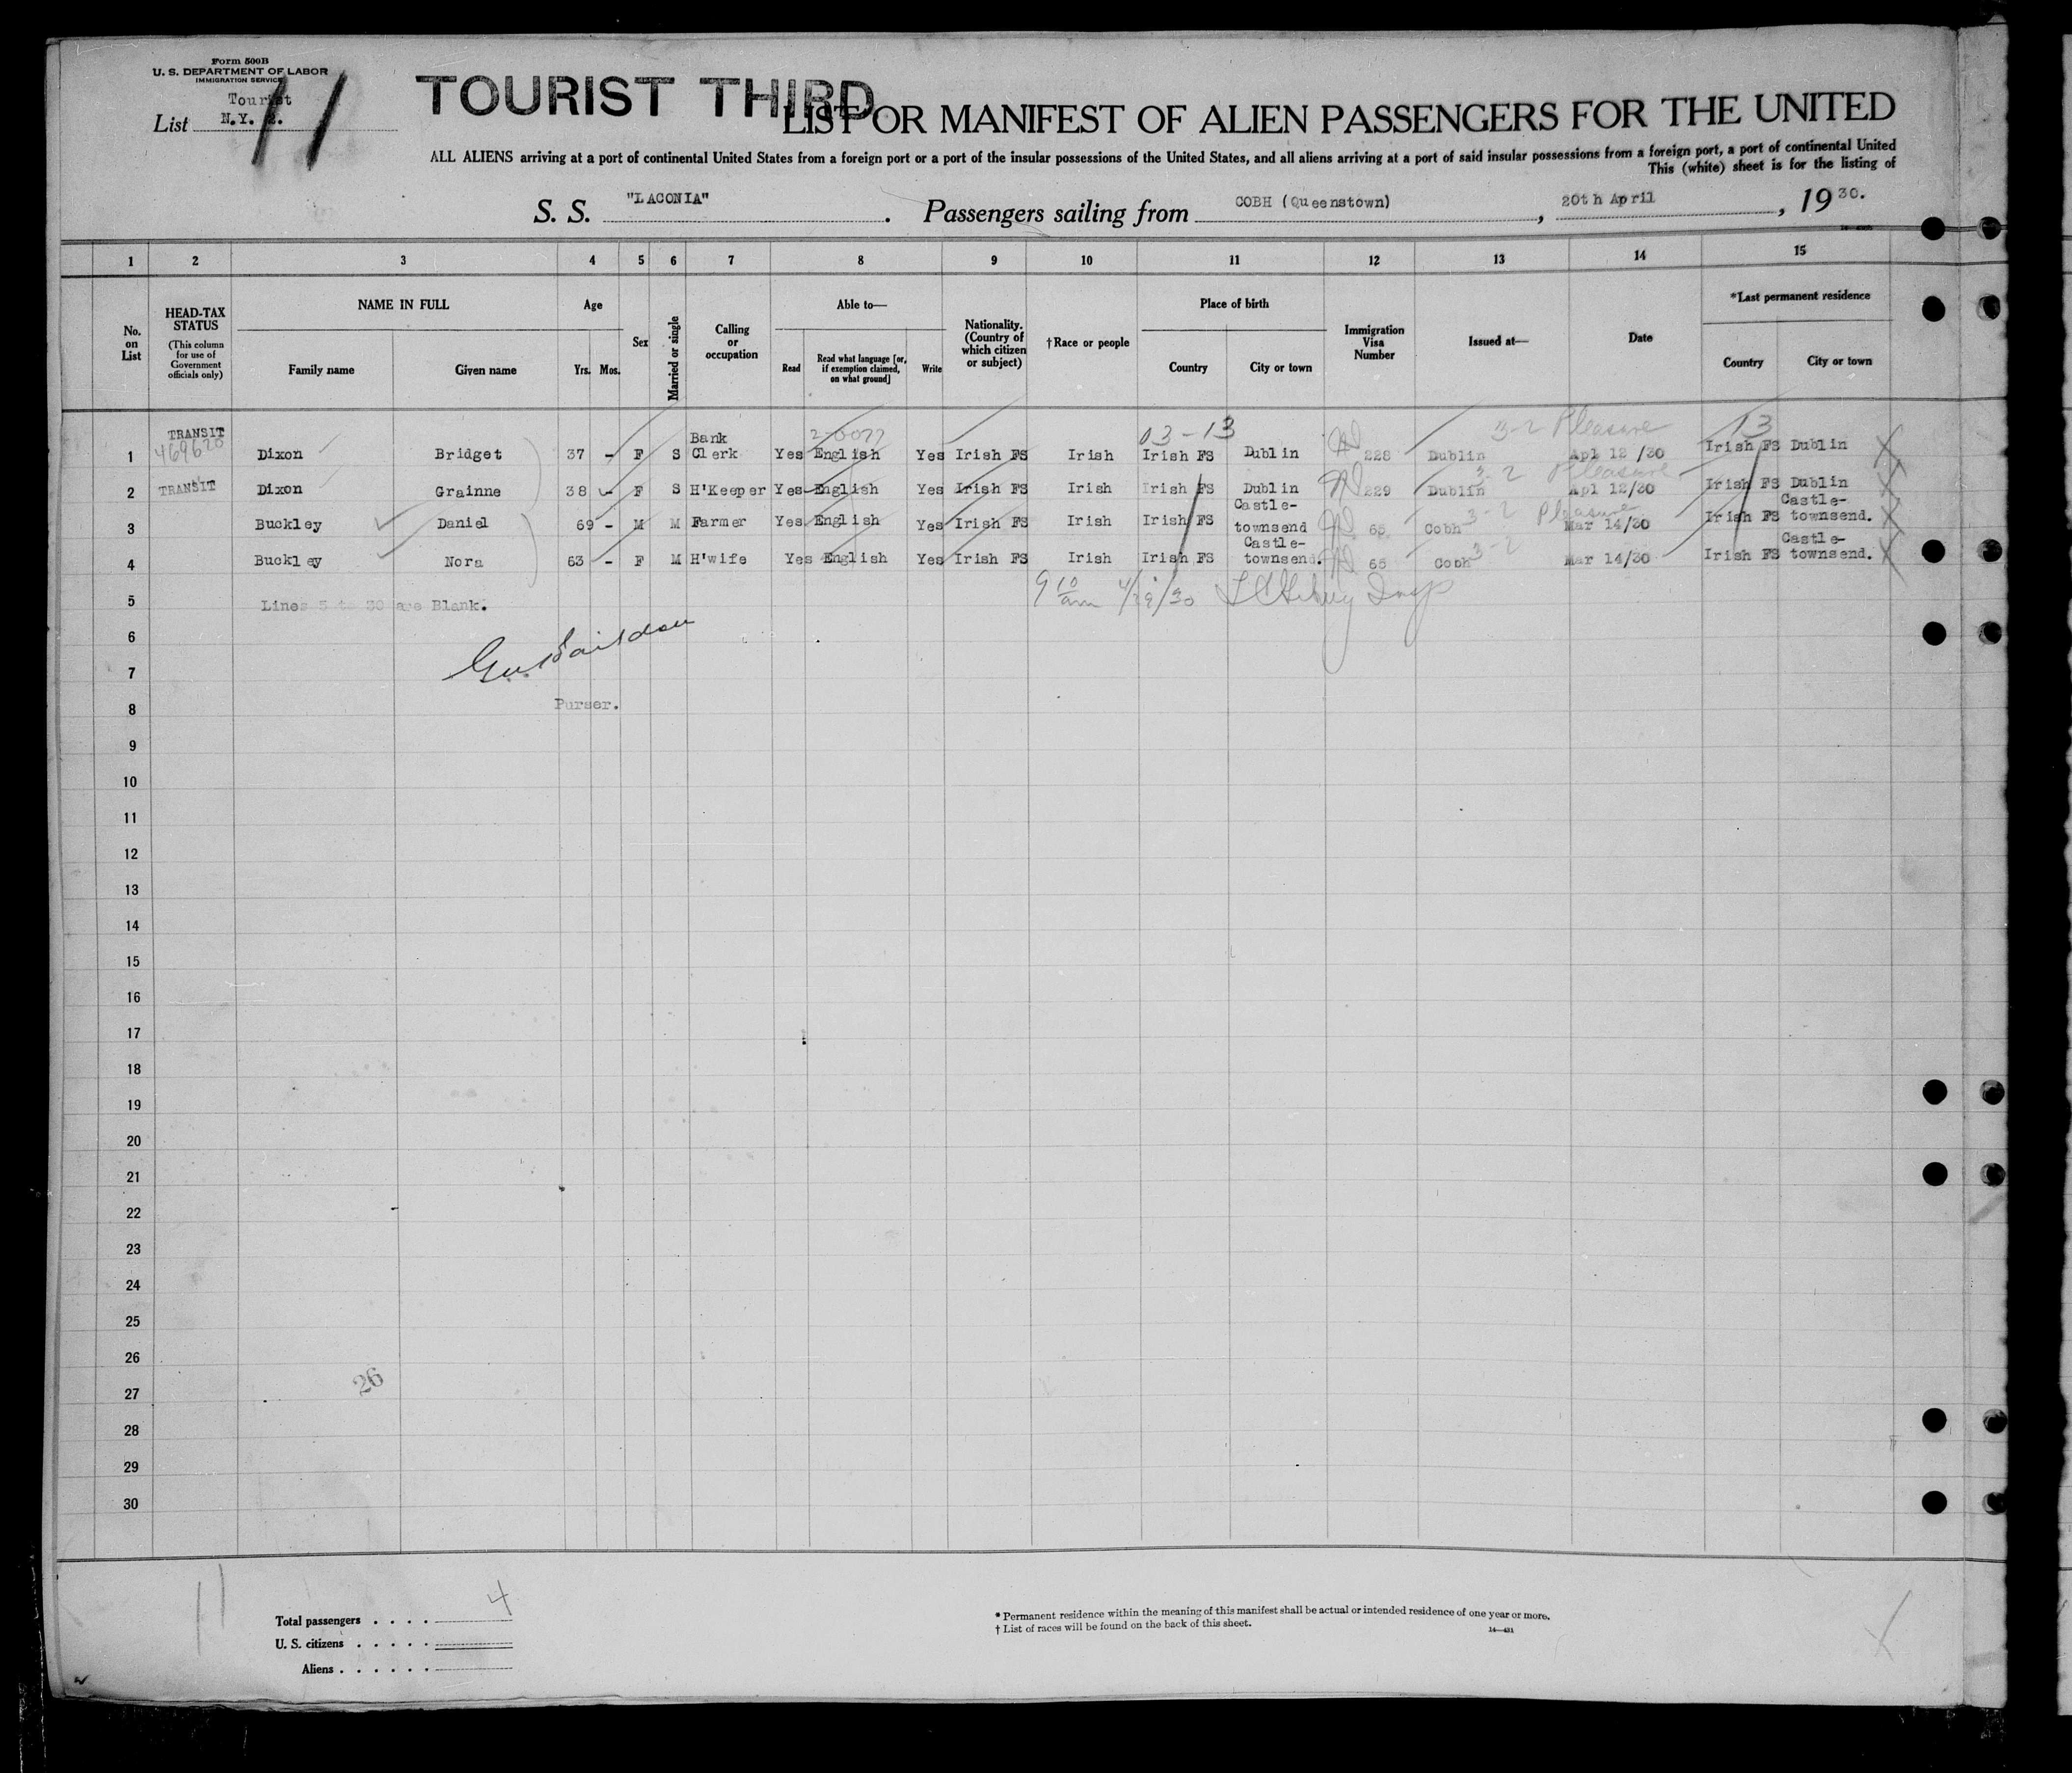 Form 500B
U. S. DEPARTMENT OF LABOR
IMMIGRATION SERVICE
Tourist
List N.Y. 2.
11
TOURIST THIRD
LIST OR MANIFEST OF ALIEN PASSENGERS FOR THE UNITED
ALL ALIENS arriving at a port of continental United States from a foreign port or a port of the insular possessions of the United States, and all aliens arriving at a port of said insular possessions from a foreign port, a port of continental United
This (white) sheet is for the listing of
S. S. "LACONIA". Passengers sailing from COBH (Queenstown), 20th April, 1930.
1 2 3 4 5 6 7 8 9 10 11 12 13 14 15
No. on List
HEAD-TAX STATUS
(This column for use of Government officials only)
NAME IN FULL
Family name Given name
Age
Yrs. Mos.
Sex
Married or single
Calling or occupation
Able to—
Read Read what language [or, if exemption claimed, on what ground] Write
Nationality. (Country of which citizen or subject)
†Race or people
Place of birth
Country City or town
Immigration Visa Number
Issued at—
Date
*Last permanent residence
Country City or town
2-0077 03-13 3-2 Pleasure 13
1 TRANSIT 469620 Dixon Bridget 37 - F S Bank Clerk Yes English Yes Irish FS Irish Irish FS Dublin 228 Dublin Apl 12 /30 Irish FS Dublin
3-2 Pleasure
2 TRANSIT Dixon Grainne 38 - F S H'Keeper Yes English Yes Irish FS Irish Irish FS Dublin 229 Dublin Apl 12/30 Irish FS Dublin
3-2 Pleasure
3 Buckley Daniel 69 - M M Farmer Yes English Yes Irish FS Irish Irish FS Castle-townsend 65 Cobh Mar 14/30 Irish FS Castle-townsend.
3-2
4 Buckley Nora 63 - F M H'wife Yes English Yes Irish FS Irish Irish FS Castle-townsend. 66 Cobh Mar 14/30 Irish FS Castle-townsend.
5 Lines 5 to 30 are Blank.
9 10 am 4/29/30 Insp
6
7
8 Purser.
9
10
11
12
13
14
15
16
17
18
19
20
21
22
23
24
25
26
26
27
28
29
30
11
Total passengers . . . . 4
U. S. citizens . . . . .
Aliens . . . . . .
* Permanent residence within the meaning of this manifest shall be actual or intended residence of one year or more.
† List of races will be found on the back of this sheet.
14—431